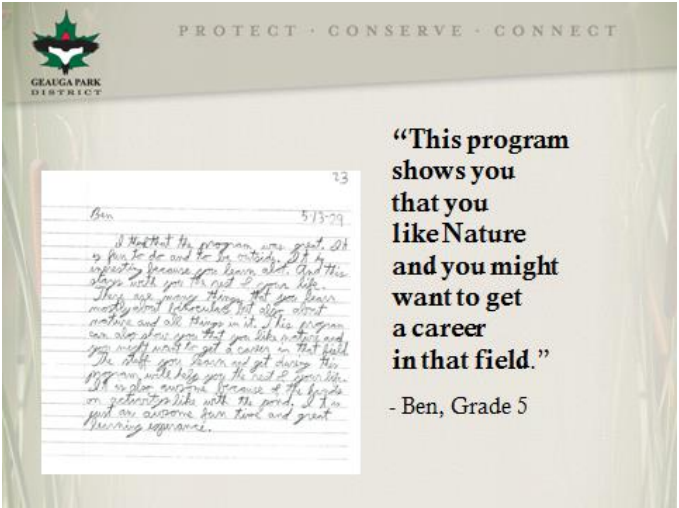 PROTECT · CONSERVE · CONNECT
GEAUGA PARK
DISTRICT
23
Ben 5-13-29
I that the program was great. It
is fun to do and to be outside. It is
because you learn alot. And this
stays with you the rest of your life.
There are many things that you learn
mostly about but also about
nature and all things in it. This program
can also show you that you like nature and
you might want to get a career in that field.
The you learn and get during this
program will help you the rest of your life.
It is also awsome because of the hands
on like with the pond. It is
just an awsome fun time and great
learning
“This program
shows you
that you
like Nature
and you might
want to get
a career
in that field.”
- Ben, Grade 5